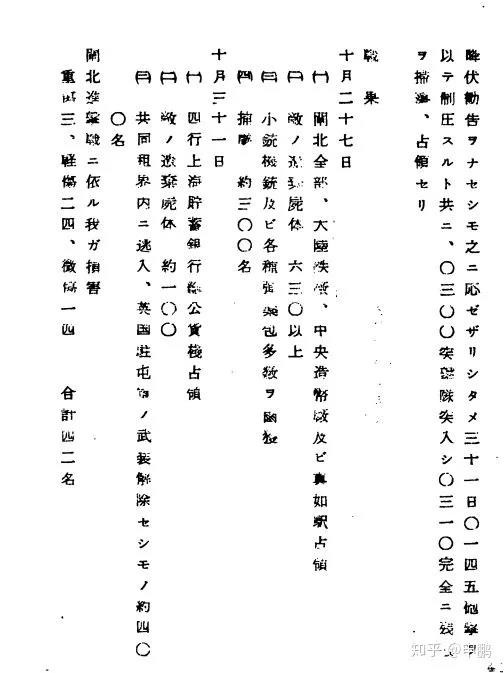 降伏勧告ヲナセシモ之ニ応ゼザリシタメ三十一日〇一四五砲撃ヲ
以テ制圧スルト共ニ、〇三〇〇突撃隊突入シ〇三一〇完全ニ残
ヲ掃蕩、占領セリ
戰果
十月二十七日
(一) 閘北全部、大陸鉄廠、中央造幣廠及ビ真如駅占領
(二) 敵ノ遺棄屍体 六三〇以上
(三) 小銃機銃及ビ各種弾薬包多数ヲ鹵獲
(四) 捕虜 約三〇〇名
十月三十一日
(一) 四行上海貯蓄銀行総公貨桟占領
(二) 敵ノ遺棄屍体 約一〇〇
(三) 共同租界内ニ逃入、英国駐屯軍ノ武装解除セシモノ約四〇
〇名
閘北進撃戰ニ依ル我ガ損害
重傷三、軽傷二四、微傷一四 合計四二名
知乎 @申鹏